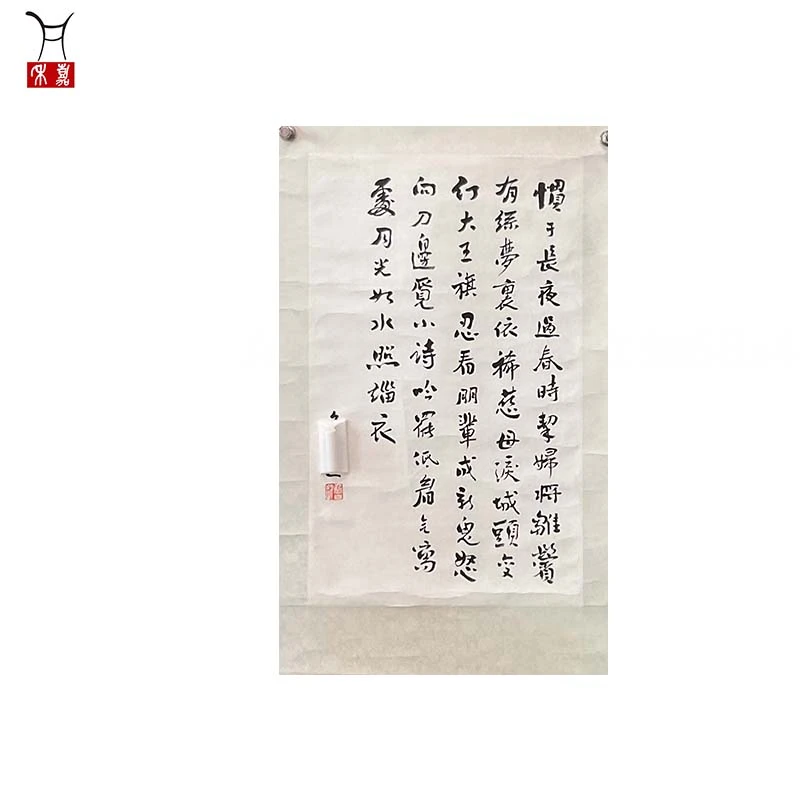 慣于長夜過春時挈婦將雛鬢
有絲夢裏依稀慈母淚城頭变
幻大王旗忍看朋輩成新鬼怒
向刀邊覓小詩吟罷低眉无寫
處月光如水照緇衣